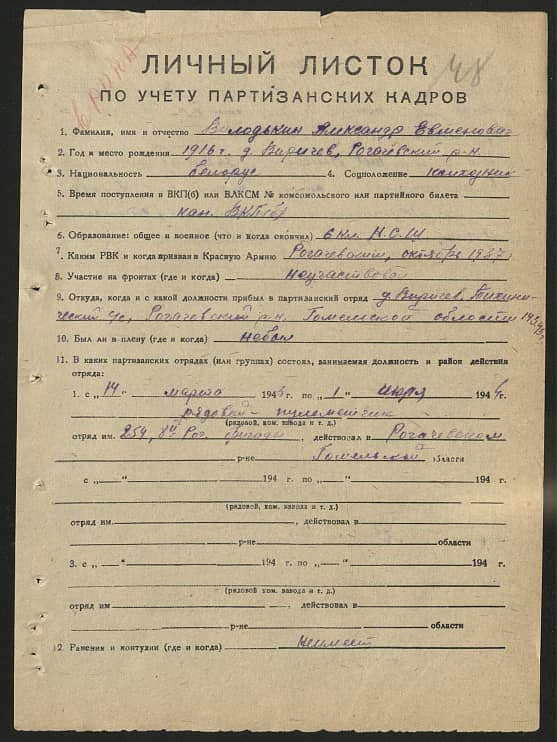 48
ЛИЧНЫЙ ЛИСТОК
ПО УЧЕТУ ПАРТИЗАНСКИХ КАДРОВ
1. Фамилия, имя и отчество Володькин Александр Евменович
2. Год и место рождения 1916 г. д. Виричев, Рогачевский р-н
3. Национальность белорус 4. Соцположение колхозник
5. Время поступления в ВКП(б) или ВЛКСМ № комсомольского или партийного билета
кан. ВКП(б)
6. Образование: общее и военное (что и когда окончил) 6 кл. Н.С.Ш
7. Каким РВК и когда призван в Красную Армию Рогачевским, октябрь 1937 г
8. Участие на фронтах (где и когда) неучаствовал
9. Откуда, когда и с какой должности прибыл в партизанский отряд д. Виричев, Тихини-
ческий с/с, Рогачевский р-н. Гомельской области
10. Был ли в плену (где и когда) небыл
11. В каких партизанских отрядах (или группах) состоял, занимаемая должность и район действия
отряда:
1. с „14" марта 1943 г. по „1" июля 1944 г.
рядовой - пулеметчик
(рядовой, ком. взвода и т. д.)
отряд им. 259, 8й Рог. бригады, действовал в Рогачевском
р-не Гомельской области
с „ " 194 г. по „ " 194 г.
(рядовой, ком. взвода и т. д.)
отряд им. , действовал в
р-не области
3. с „ " 194 г. по „ " 194 г.
(рядовой, ком. взвода и т. д.)
отряд им , действовал в
р-не области
12. Ранения и контузии (где и когда) неимеет